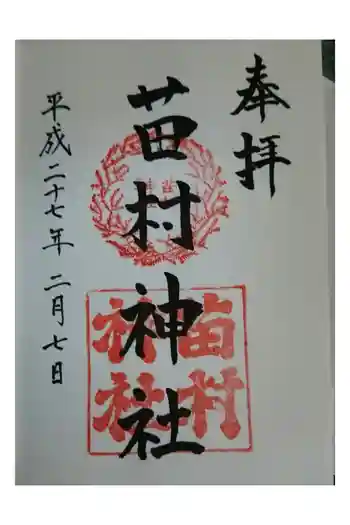 奉拝
苗村神社
平成二十七年二月七日
苗村
神社